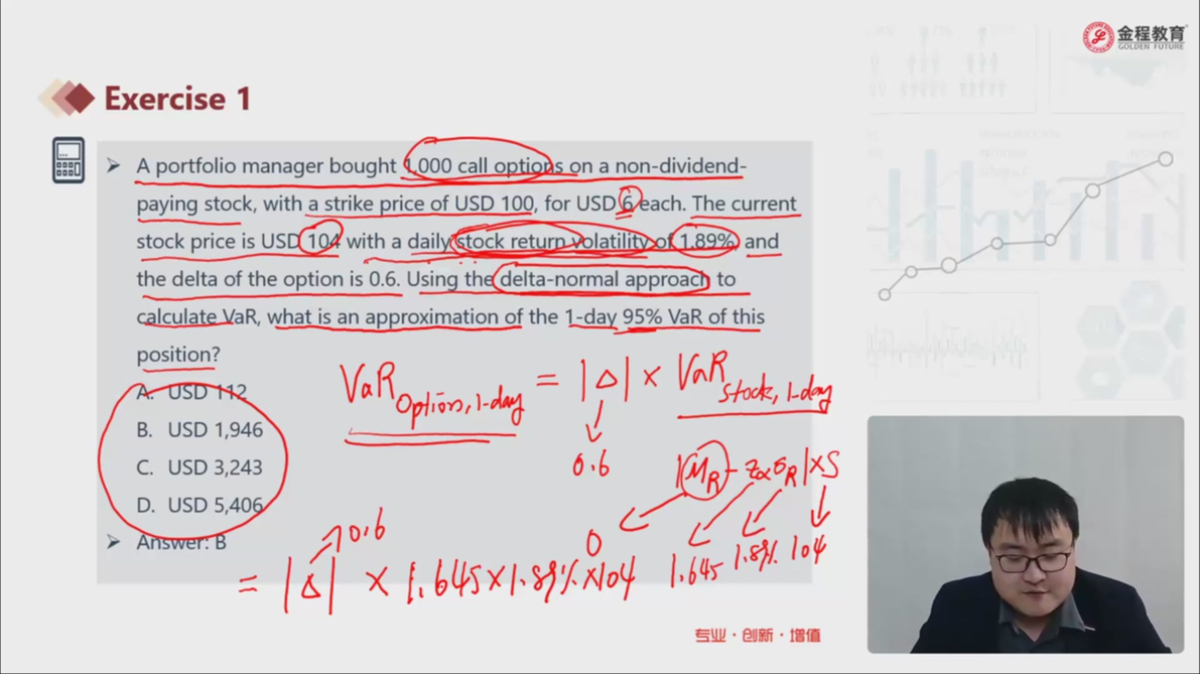 金程教育
GOLDEN FUTURE
Exercise 1
A portfolio manager bought 1,000 call options on a non-dividend-
paying stock, with a strike price of USD 100, for USD 6 each. The current
stock price is USD 104 with a daily stock return volatility of 1.89% and
the delta of the option is 0.6. Using the delta-normal approach to
calculate VaR, what is an approximation of the 1-day 95% VaR of this
position?
A. USD 112
B. USD 1,946
C. USD 3,243
D. USD 5,406
Answer: B
VaR Option, 1-day = |Δ| × VaR Stock, 1-day
0.6
|μR - zασR| × S
0 1.645 1.89% 104
0.6
= |Δ| × 1.645 × 1.89% × 104
专业·创新·增值